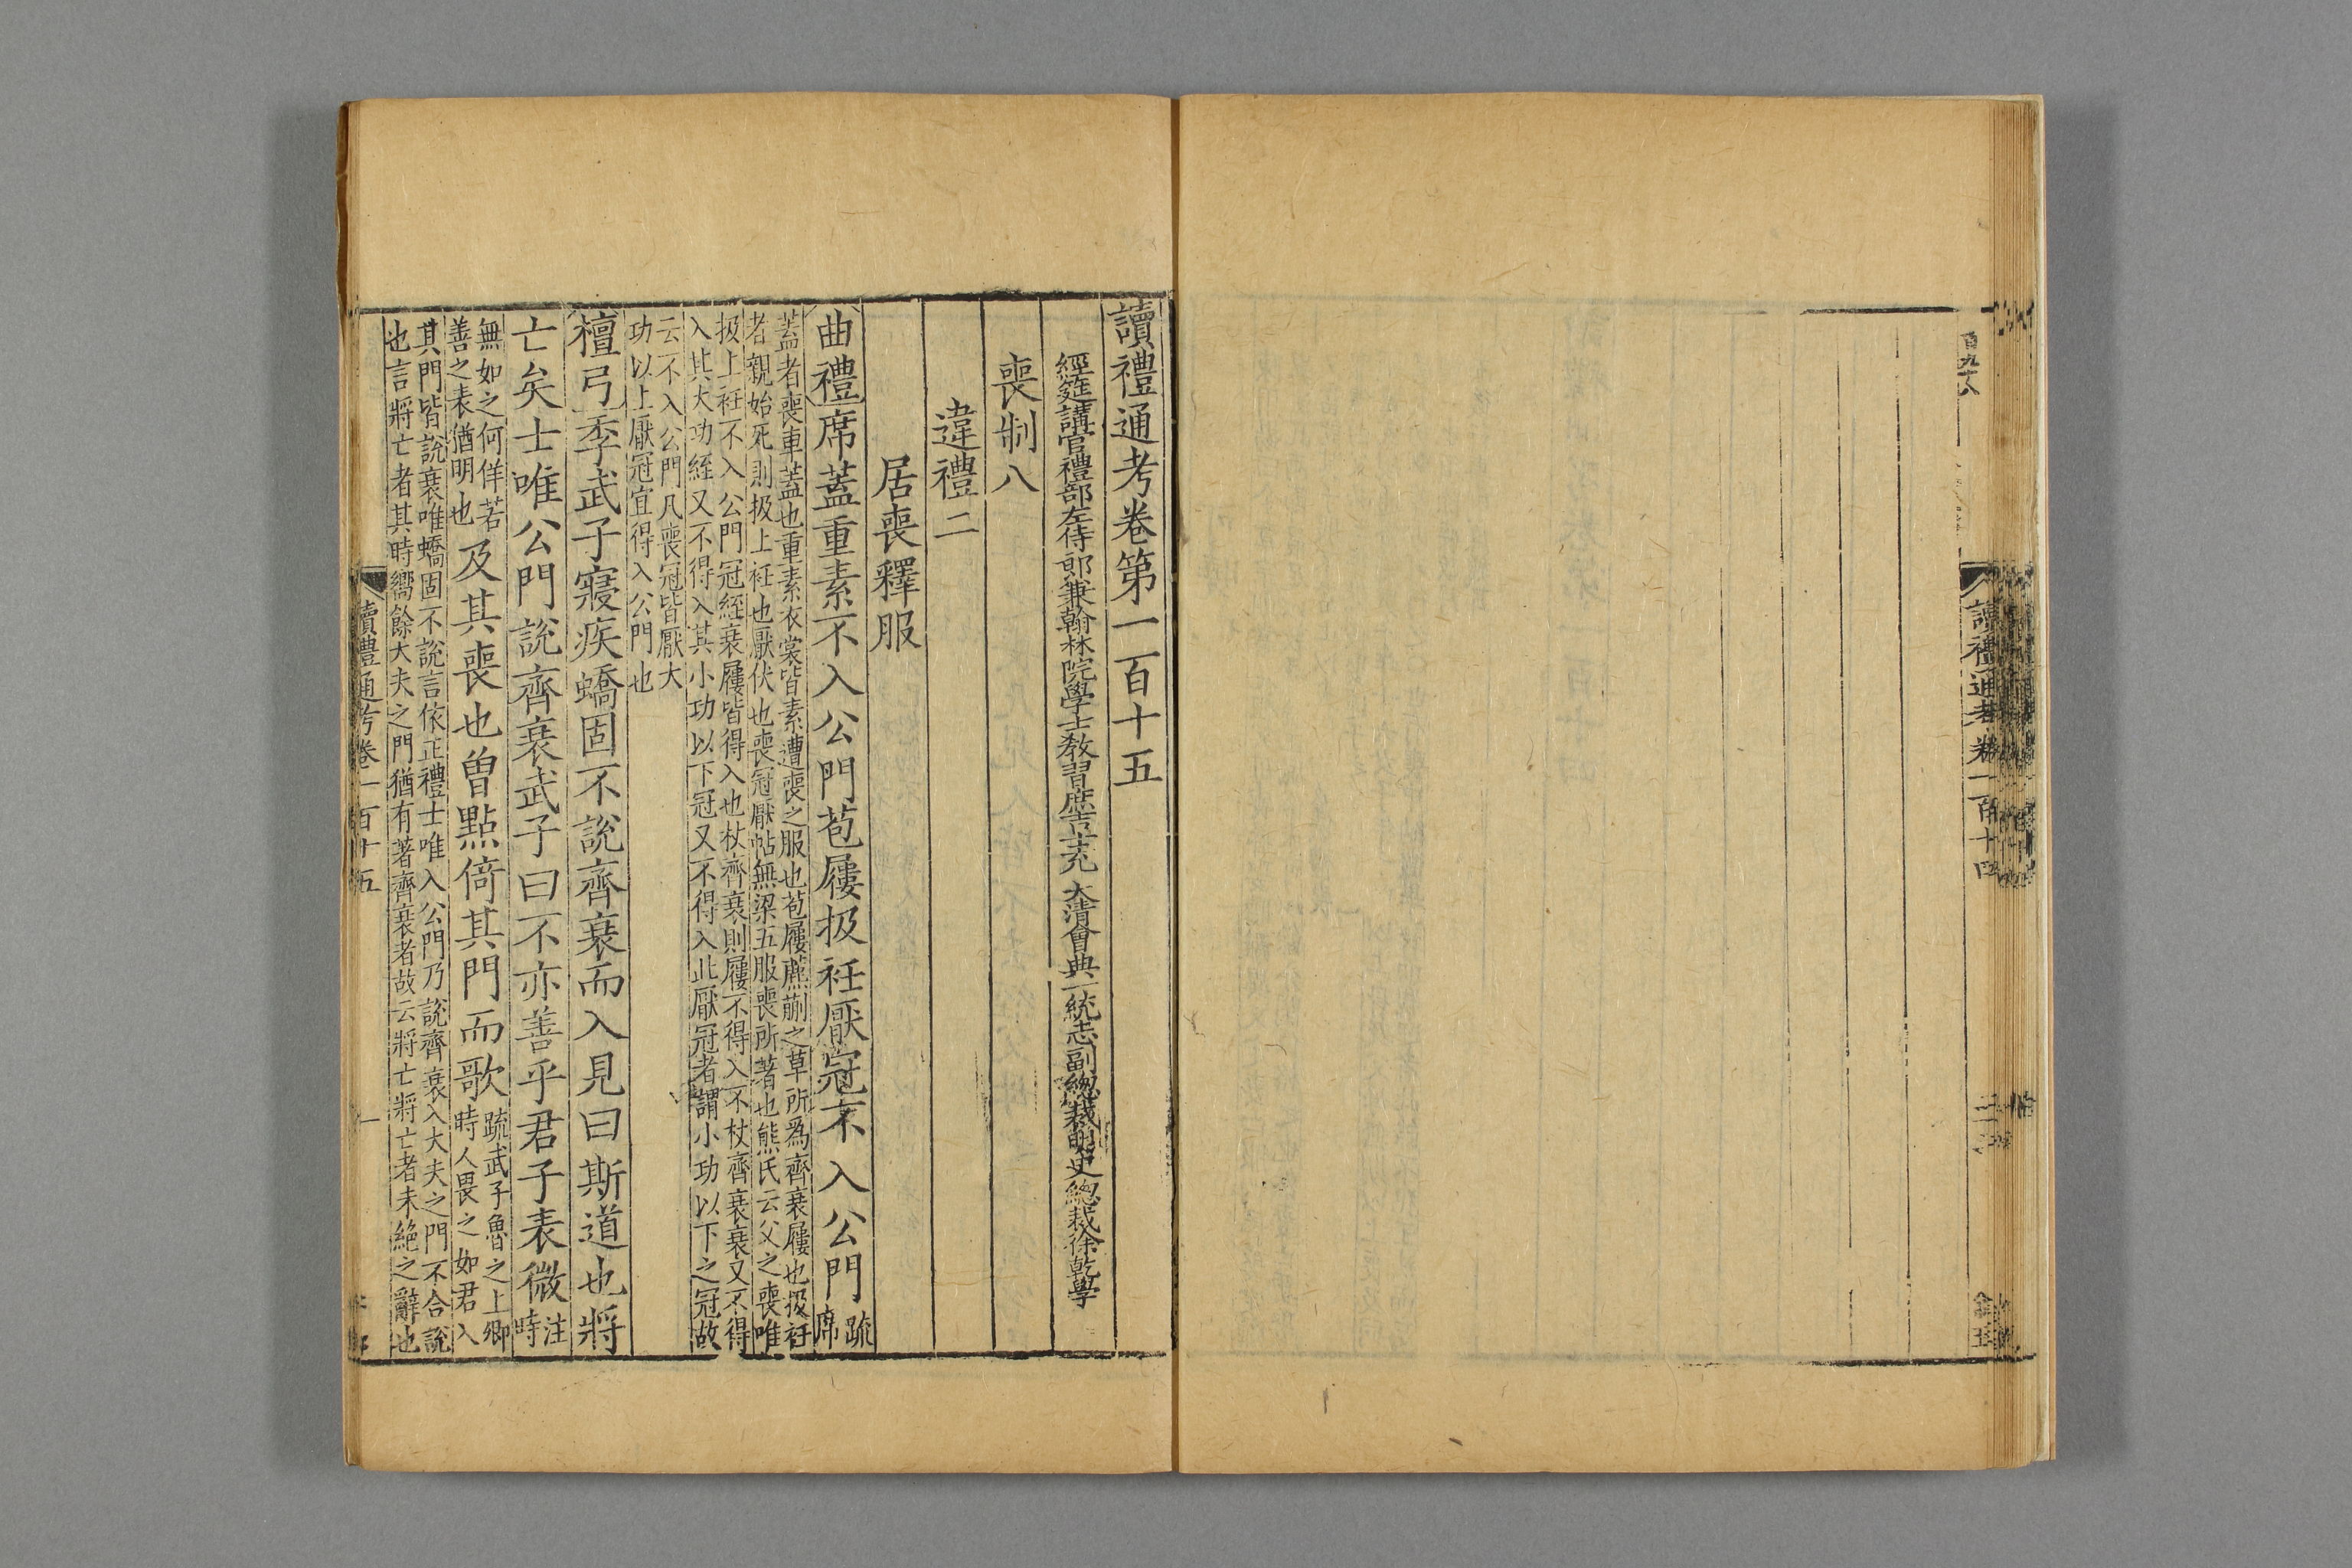 百九十八
讀禮通考卷一百十四
讀禮通考卷第一百十五
經筵講官禮部左侍郞兼翰林院學士敎習庶吉士充　大淸會典一統志副總裁明史總裁徐乾學
喪制八
違禮二
居喪釋服
曲禮席蓋重素不入公門苞屨扱衽厭冠不入公門疏席
蓋者喪車蓋也重素衣裳皆素遭喪之服也苞屨藨蒯之草所爲齊衰屨也扱衽
者親始死則扱上衽也厭伏也喪冠厭帖無梁五服喪所著也熊氏云父之喪唯
扱上衽不入公門冠絰衰屨皆得入也杖齊衰則屨不得入不杖齊衰衰又不得
入其大功絰又不得入其小功以下冠又不得入此厭冠者謂小功以下之冠故
云不入公門凡喪冠皆厭大
功以上厭冠宜得入公門也
檀弓季武子寢疾蟜固不說齊衰而入見曰斯道也將
亡矣士唯公門說齊衰武子曰不亦善乎君子表微注時
無如之何佯若
善之表猶明也
及其喪也曾點倚其門而歌
疏武子魯之上卿
時人畏之如君入
其門皆說衰唯蟜固不說言依正禮士唯入公門乃說齊衰入大夫之門不合說
也言將亡者其時嚮餘大夫之門猶有著齊衰者故云將亡將亡者未絕之辭也
讀禮通考卷一百十五
一